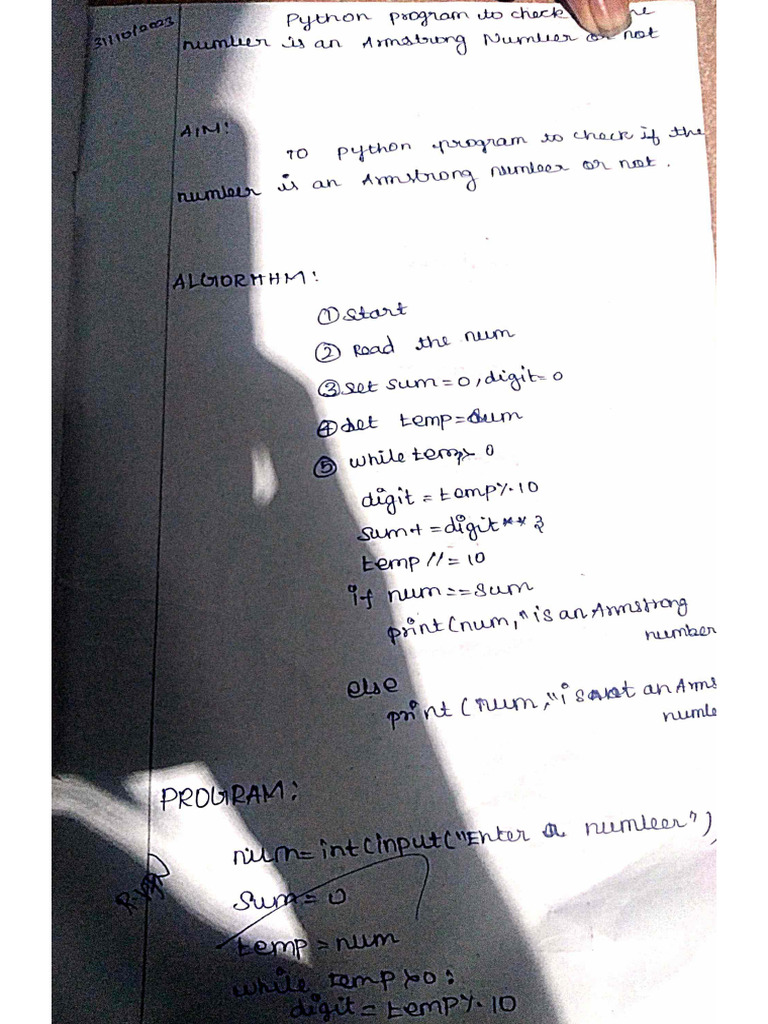 31/10/2023
Python program to check
number is an Armstrong Number or not
AIM:
TO Python program to check if the
number is an Armstrong number or not.
ALGIORTHM:
① Start
② Read the num
③ set sum=0, digit=0
④ set temp=num
⑤ while temp>0
digit = temp%10
sum+=digit**3
temp //= 10
if num==sum
print(num,"is an Armstrong
number
else
print(num,"is not an Arms
numbe
PROGRAM:
num=int(input("Enter a number")
sum=0
temp=num
while temp>0:
digit=temp%10